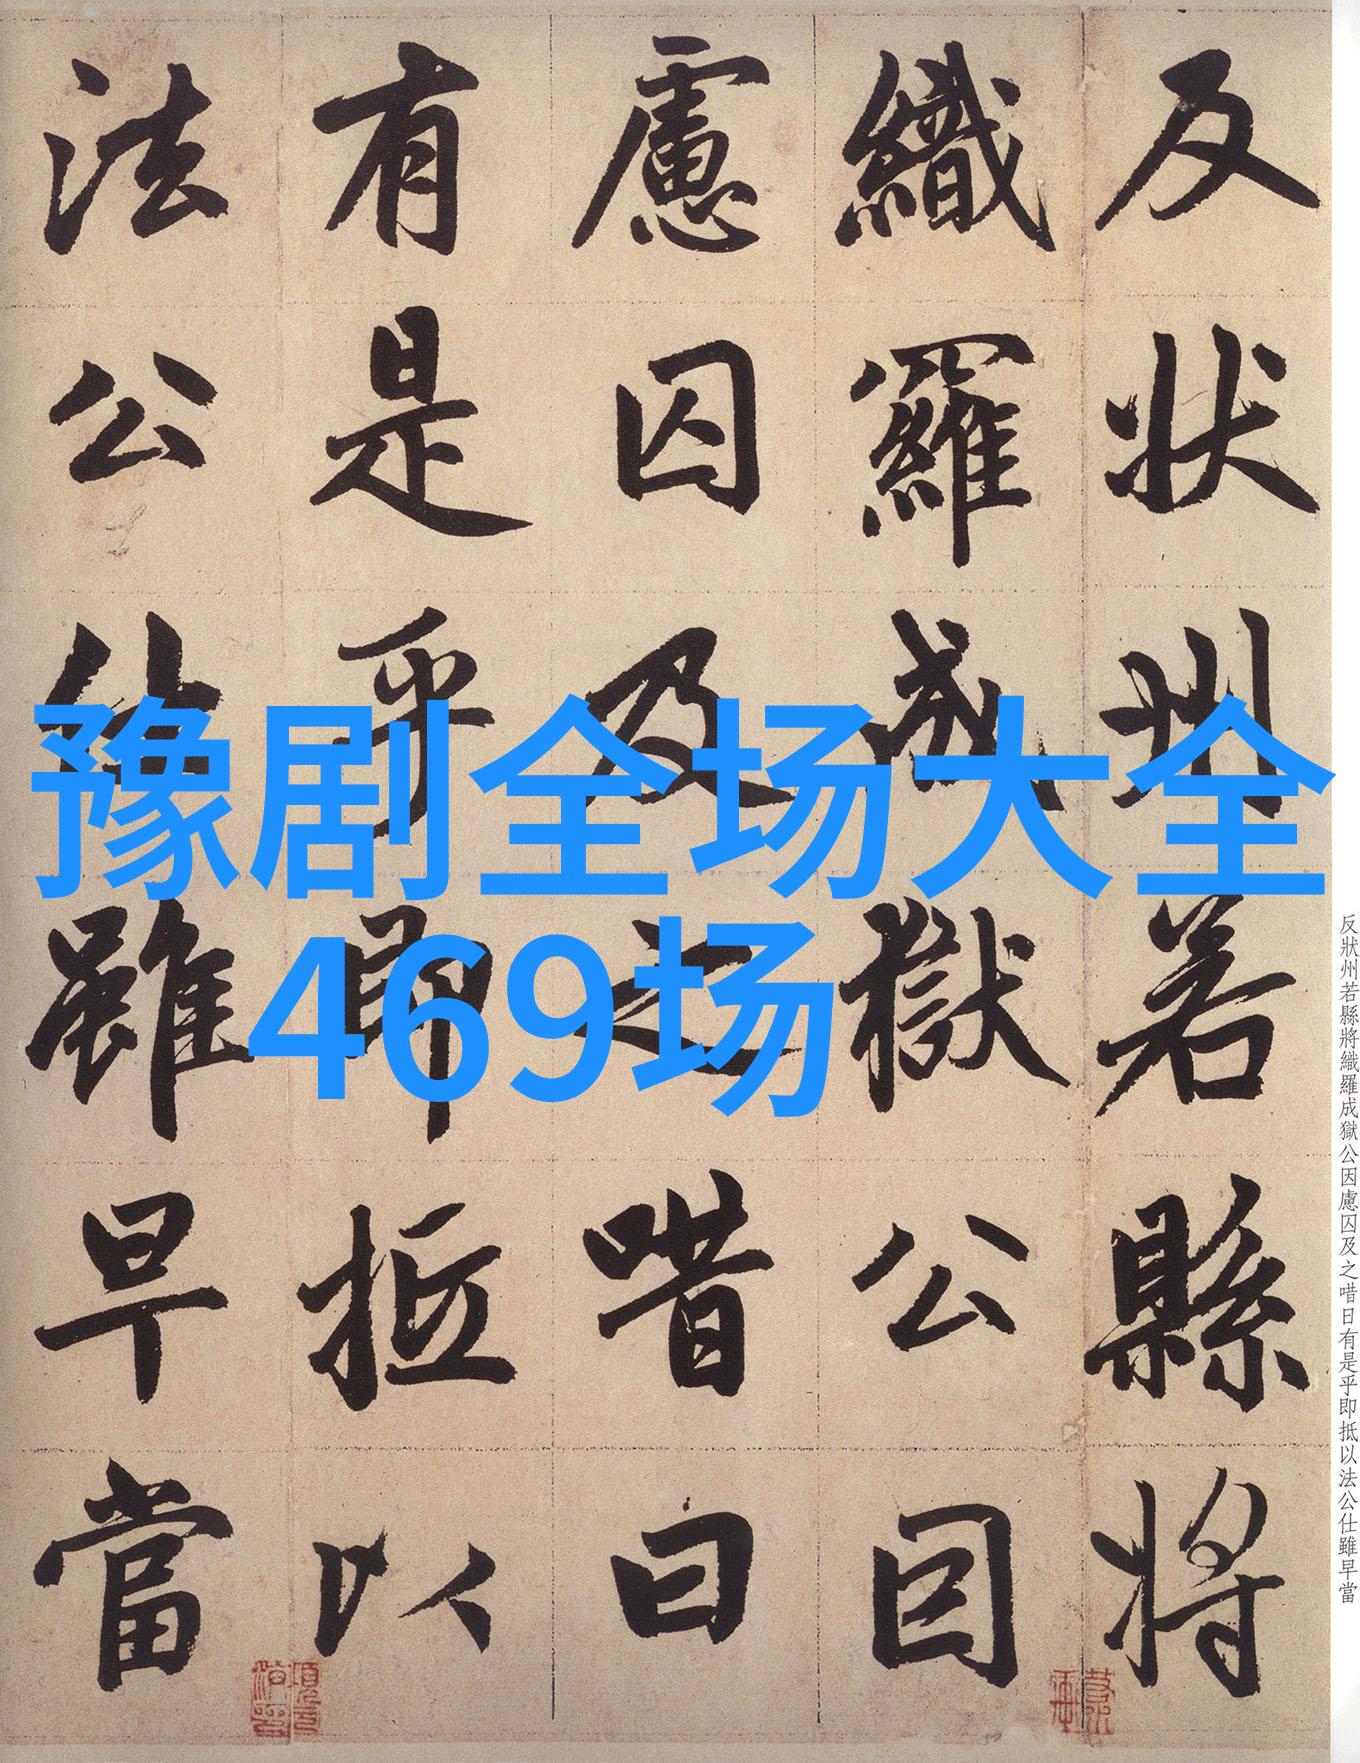 反狀州若縣將
織羅成獄公因
慮囚及之唶曰
有是乎即抵以
法公仕雖早當
豫剧全场大全
469场
反狀州若縣將織羅成獄公因慮囚及之唶日有是乎即抵以法公仕雖早當